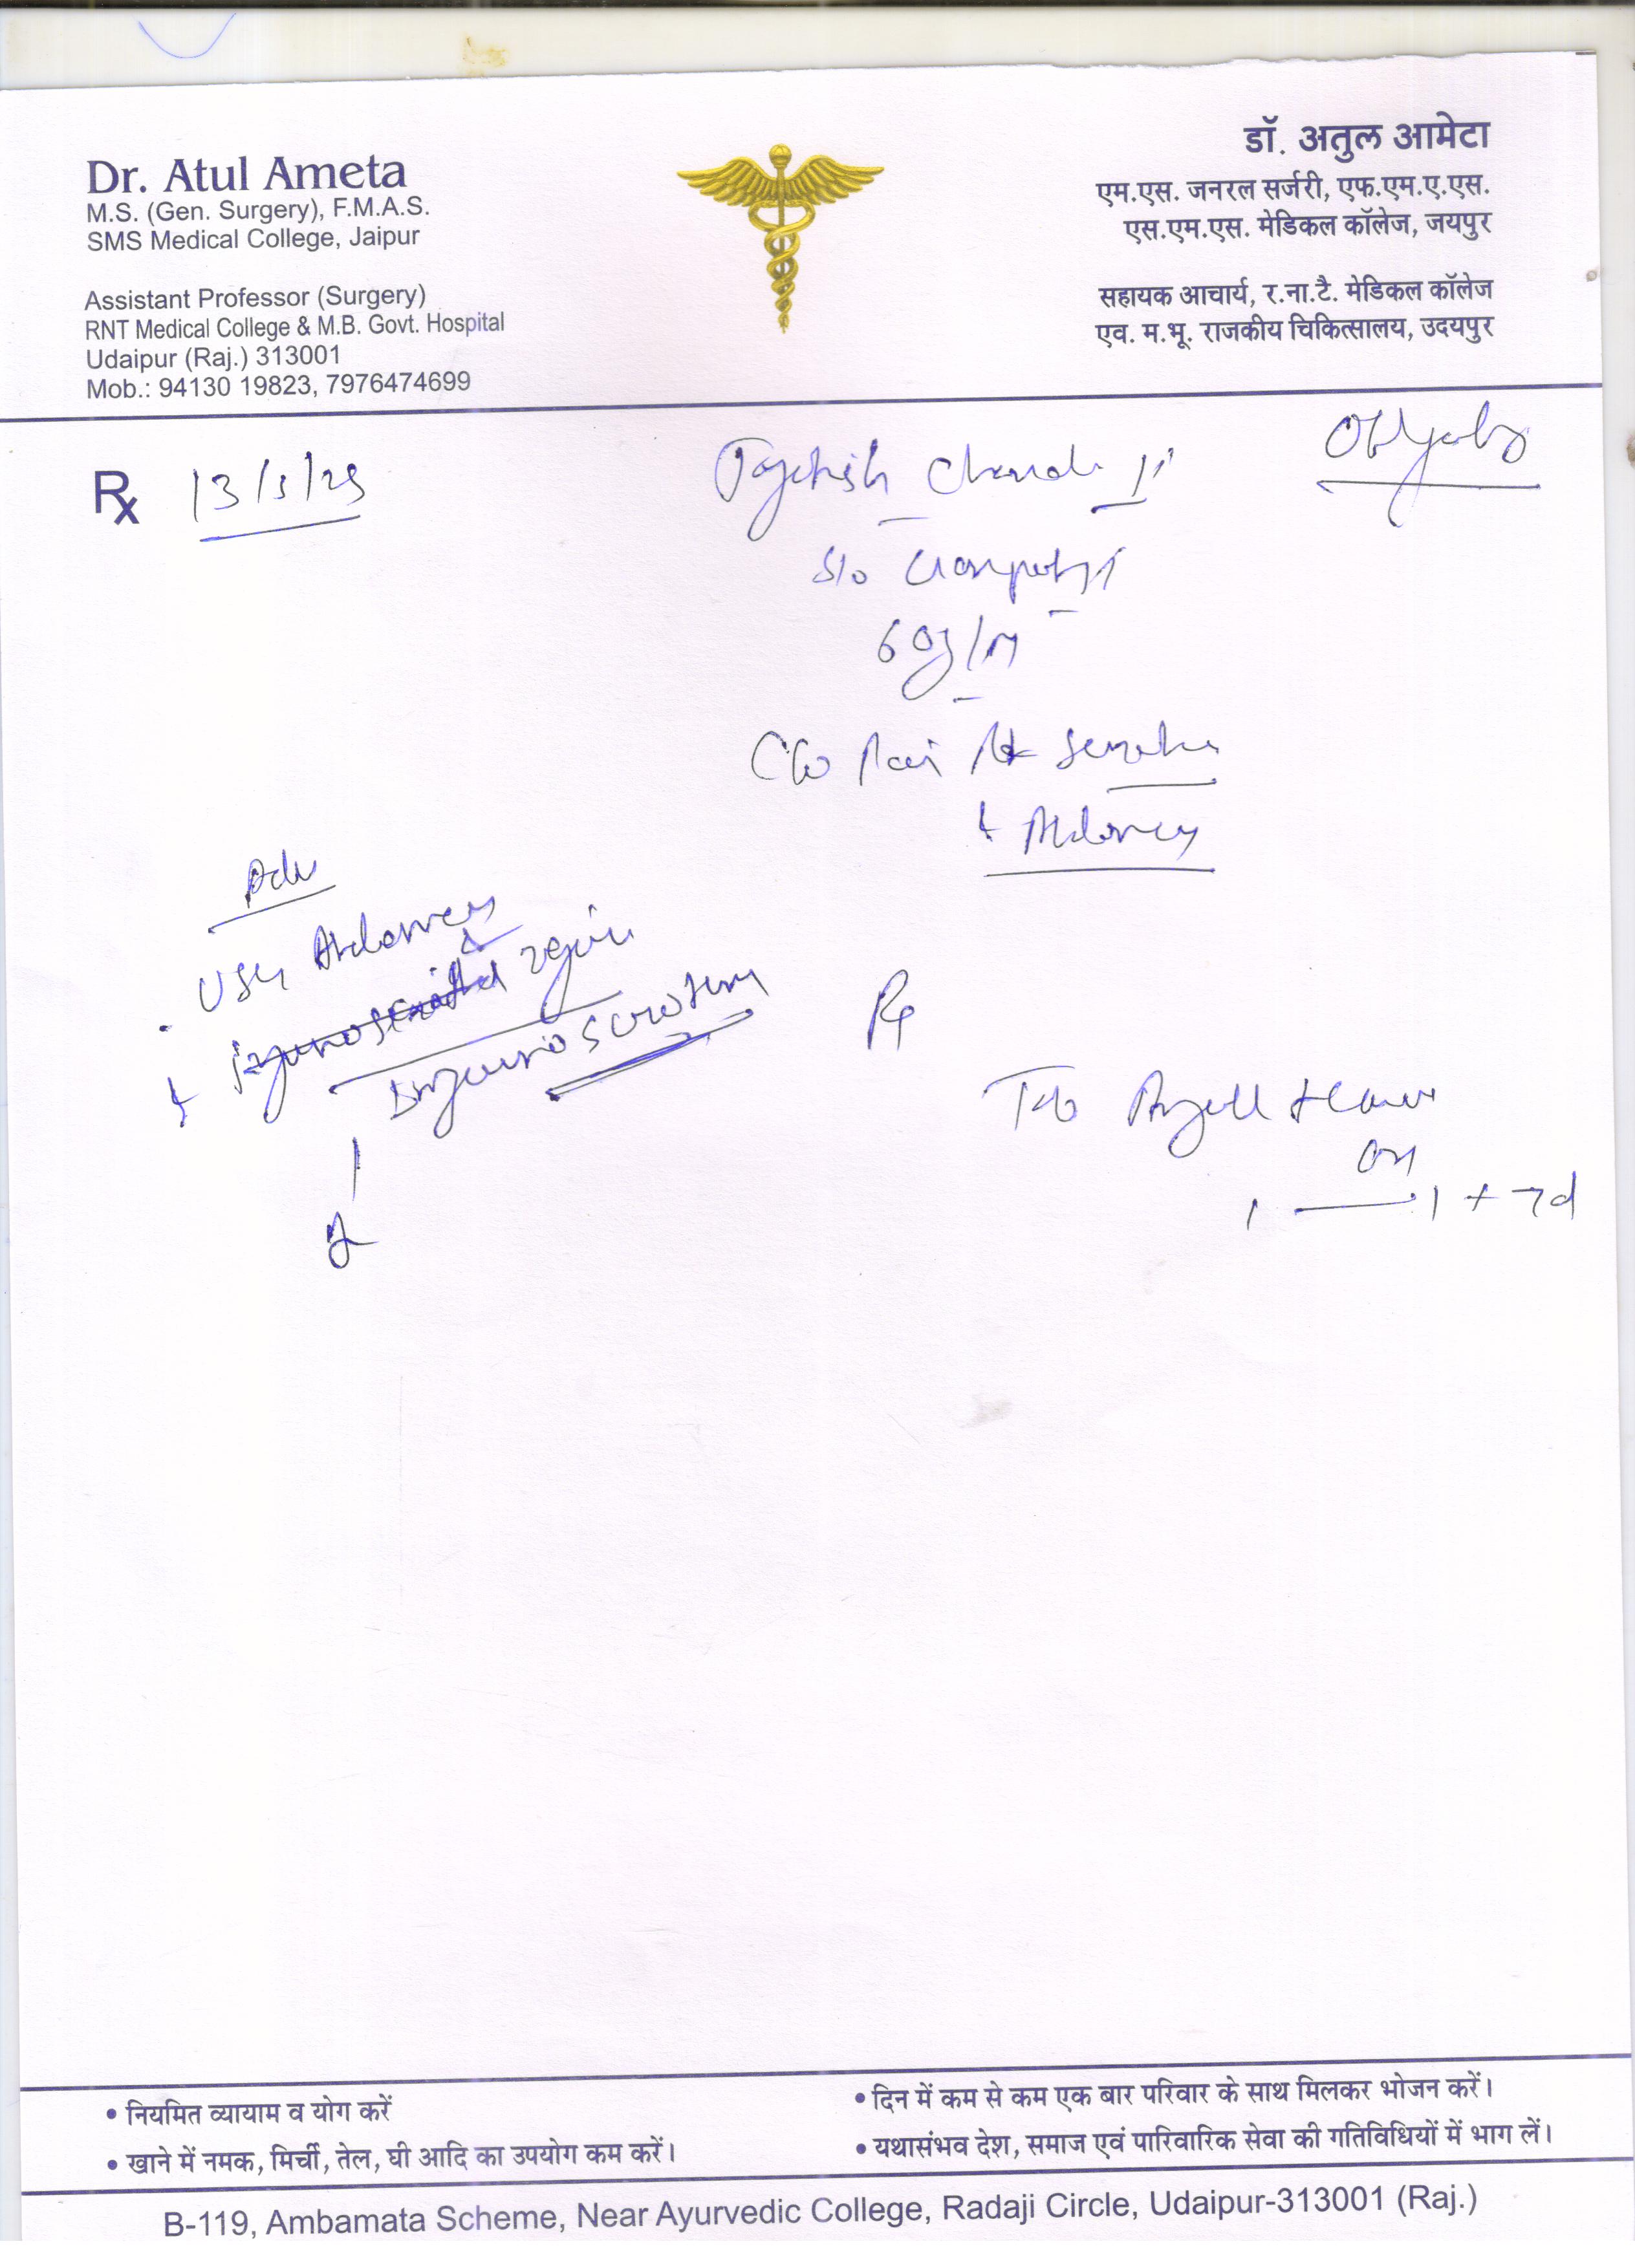 Dr. Atul Ameta
M.S. (Gen. Surgery), F.M.A.S.
SMS Medical College, Jaipur
Assistant Professor (Surgery)
RNT Medical College & M.B. Govt. Hospital
Udaipur (Raj.) 313001
Mob.: 94130 19823, 7976474699
डॉ. अतुल आमेटा
एम.एस. जनरल सर्जरी, एफ.एम.ए.एस.
एस.एम.एस. मेडिकल कॉलेज, जयपुर
सहायक आचार्य, र.ना.टै. मेडिकल कॉलेज
एव. म.भू. राजकीय चिकित्सालय, उदयपुर
Rx
S/o
60y/M
C/o Pain
+ Abdomen
Adv
USG Abdomen
& region
Inguinoscrotum
Rx
Tab
1 — 1 x 7d
• नियमित व्यायाम व योग करें
• खाने में नमक, मिर्ची, तेल, घी आदि का उपयोग कम करें।
• दिन में कम से कम एक बार परिवार के साथ मिलकर भोजन करें।
• यथासंभव देश, समाज एवं पारिवारिक सेवा की गतिविधियों में भाग लें।
B-119, Ambamata Scheme, Near Ayurvedic College, Radaji Circle, Udaipur-313001 (Raj.)